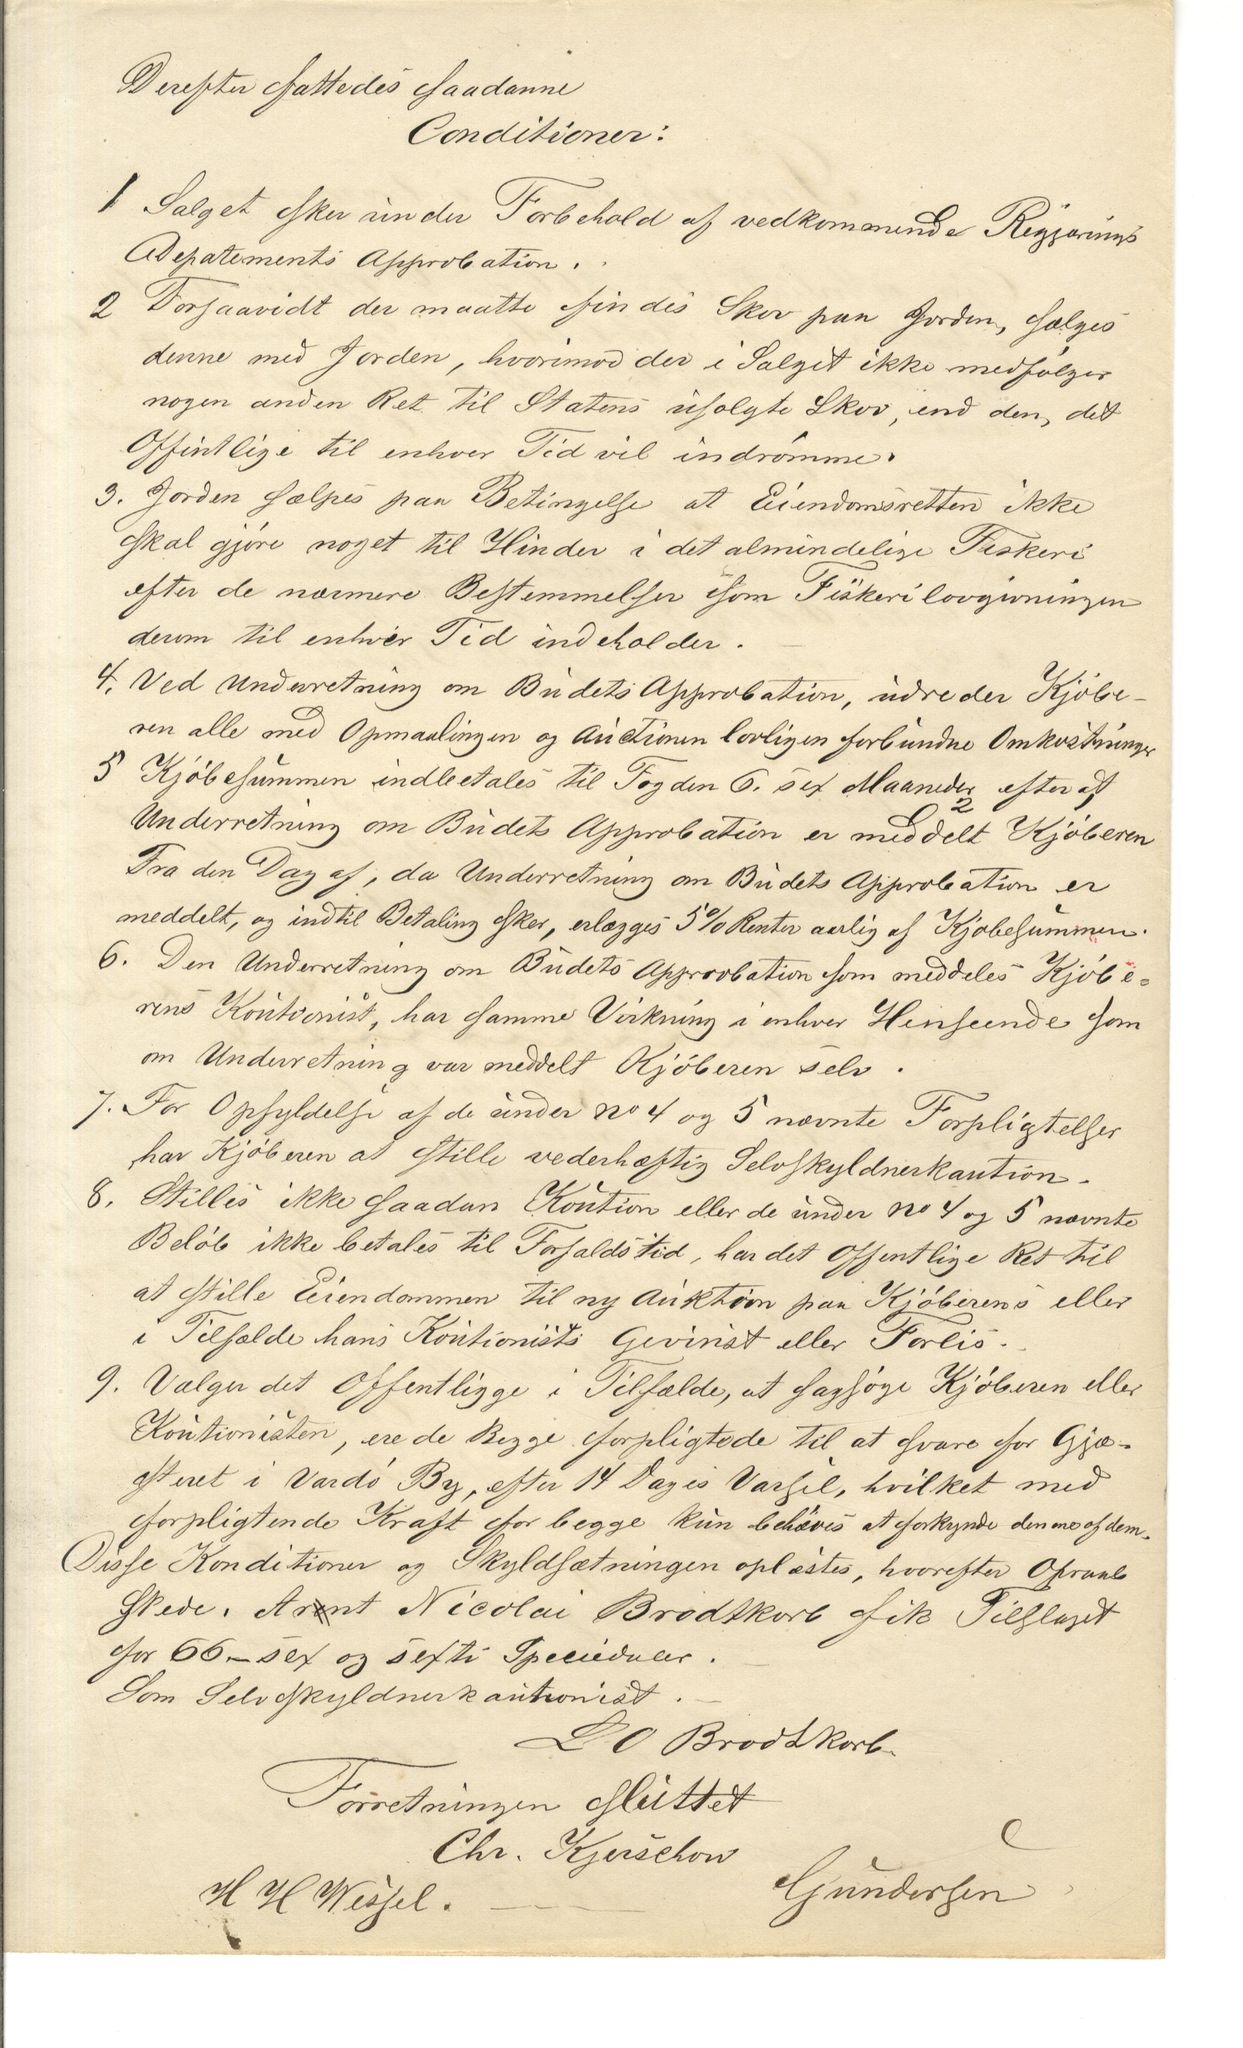 Derefter sattedes saadanne
Conditioner:
1 Salget sker under Forbehold af vedkommende Regjerings
Depatements Approbation.
2 Forsaavidt der maatte findes Skov paa Jorden, sælges
denne med Jorden, hvorimod der i Salget ikke medfølger
nogen anden Ret til Statens usolgte Skov, end den, det
Offintlige til enhver Tid vil indrømme.
3. Jorden sælges paa Betingelse at Eiendomsretten ikke
skal gjøre noget til Hinder i det almindelige Fiskeri
efter de nærmere Bestemmelser som Fiskerilovgivningen
derom til enhver Tid indeholder.
4. Ved Underretning om Budets Approbation, udreder Kjøbe-
ren alle med Opmaalingen og Auctionen lovligen forbundne Omkostninger
5 Kjøbesummen indbetales til Fogden 6. sex Maaneder efter at
Underretning om Budets Approbation er meddelt Kjøberen
Fra den Dag af, da Underretning om Budets Approbation er
meddelt, og indtil Betaling sker, erlægges 5% Renter aarlig af Kjøbesummen.
6. Den Underretning om Budets Approbation som meddeles Kjøbe-
rens Kautionist, har samme Virkning i enhver Henseende som
om Underretning var meddelt Kjøberen selv.
7. For Opfyldelse af de under no 4 og 5 nævnte Forpligtelser
har Kjøberen at stille vederhæftig Selvskyldnerkaution.
8. Stilles ikke saadan Kaution eller de under no 4 og 5 nævnte
Beløb ikke betales til Forfaldstid, har det Offentlige Ret til
at stille Eiendommen til ny Auktion paa Kjøberens eller
i Tilfælde hans Kautionists Gevinst eller Forlis.
9. Vælger det Offentligge i Tilfælde, at sagsøge Kjøberen eller
Kautionisten, ere de Begge forpligtede til at svare for Gjæ-
steret i Vardø By, efter 14 Dages Varsel, hvilket med
forpligtende Kraft for begge kun behøves at forkynde den ene af dem.
Disse Konditioner og Skyldsætningen oplæstes, hvorefter Opraab
skede. Arent Nicolai Brodtkorb fik Tilslaget
for 66 – sex og sexti Speciedaler.
Som Selvskyldnerkautionist.
L O Brodtkorb.
Forretningen sluttet
Chr. Kjerschow
H H Wessel. Gundersen